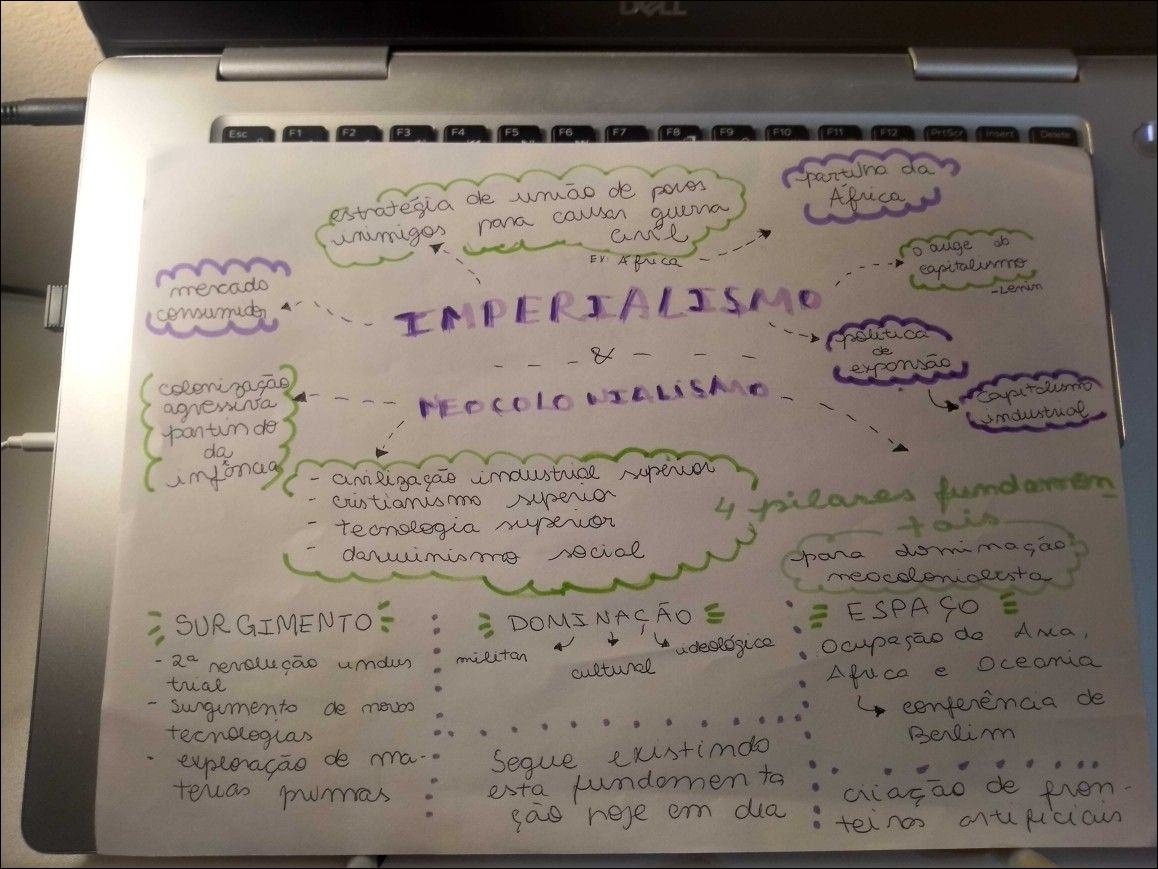 DELL
Esc F1 F2 F3 F4 F5 F6 F7 F8 F9 F10 F11 F12 PrtScr Insert Delete
estratégia de união de povos
inimigos para causar guerra
civil
Ex: África
partilha da
África
o auge do
capitalismo
-Lenin
mercado
consumidor
IMPERIALISMO
&
NEOCOLONIALISMO
política
de
expansão
capitalismo
industrial
colonização
agressiva
partindo
da
infância
- civilização industrial superior
- cristianismo superior
- tecnologia superior
- darwinismo social
4 pilares fundamen
tais
para dominação
neocolonialista
SURGIMENTO
- 2ª revolução indus
trial
- surgimento de novas
tecnologias
- exploração de ma-
terias primas
DOMINAÇÃO
militar
cultural
ideológica
Segue existindo
esta fundamenta
ção hoje em dia
ESPAÇO
Ocupação da Asia,
Africa e Oceania
conferência de
Berlim
criação de fron-
teiras artificiais